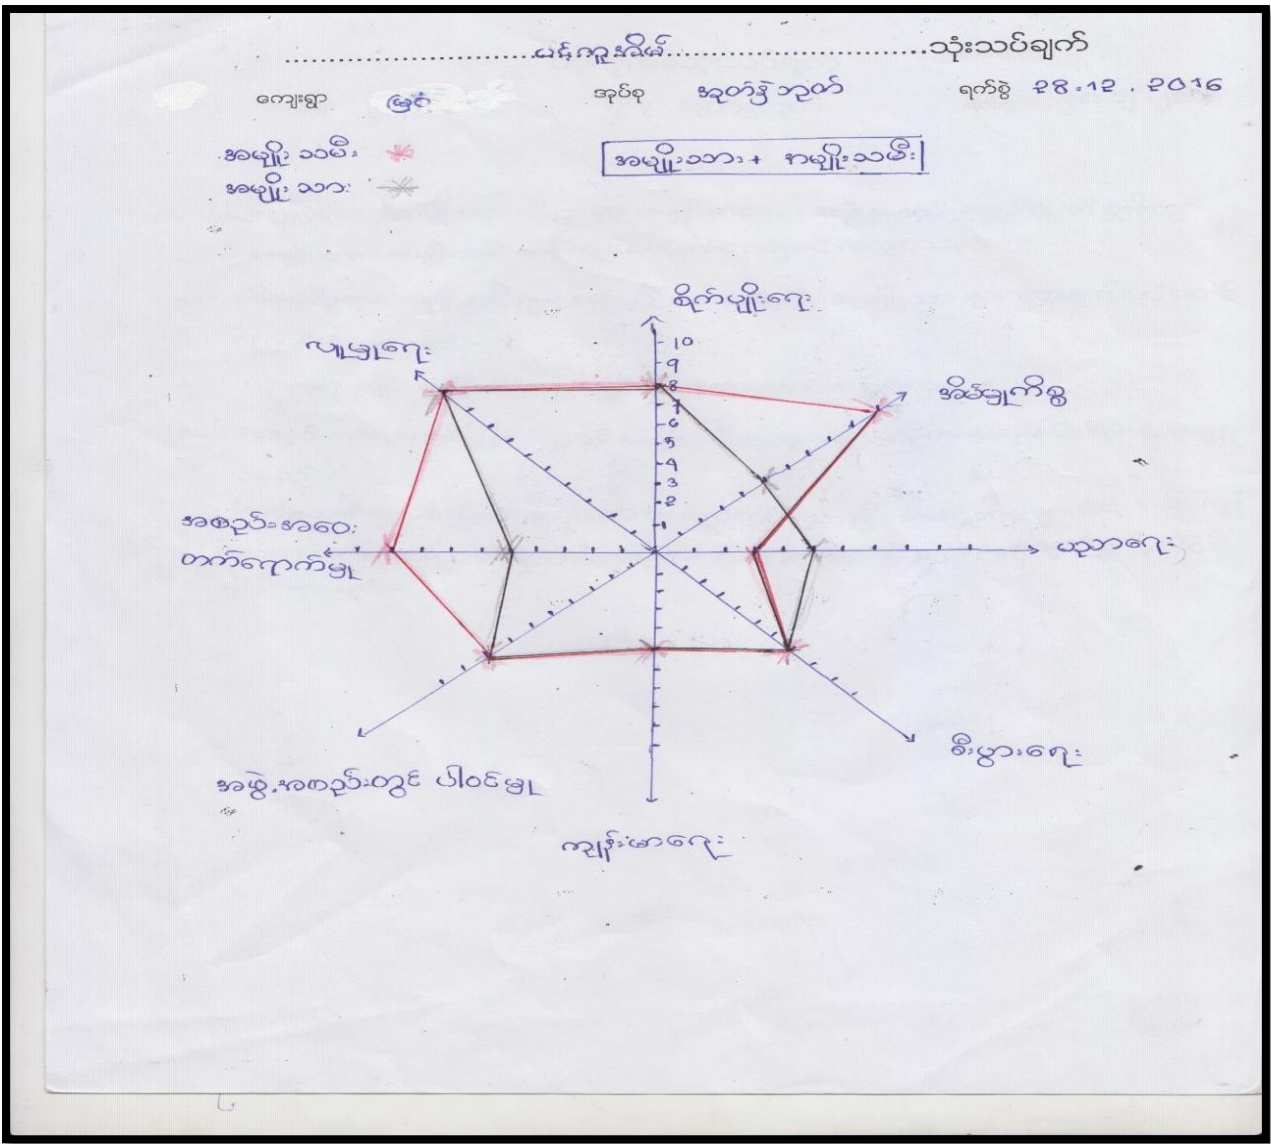 ပင့်ကူအိမ် သုံးသပ်ချက်
ကျေးရွာ မြင် အုပ်စု အုတ်နှဲဘုတ် ရက်စွဲ 28.12.2016
အမျိုး သမီး
အမျိုးသား + အမျိုးသမီး
အမျိုး သား
စိုက်ပျိုးရေး
လူမှုရေး
10
9
8
7
6
5
4
3
2
အိမ်မှုကိစ္စ
အစည်းအဝေး
တက်ရောက်မှု
ပညာရေး
စီးပွားရေး
အဖွဲ့အစည်းတွင် ပါဝင်မှု
ကျန်းမာရေး